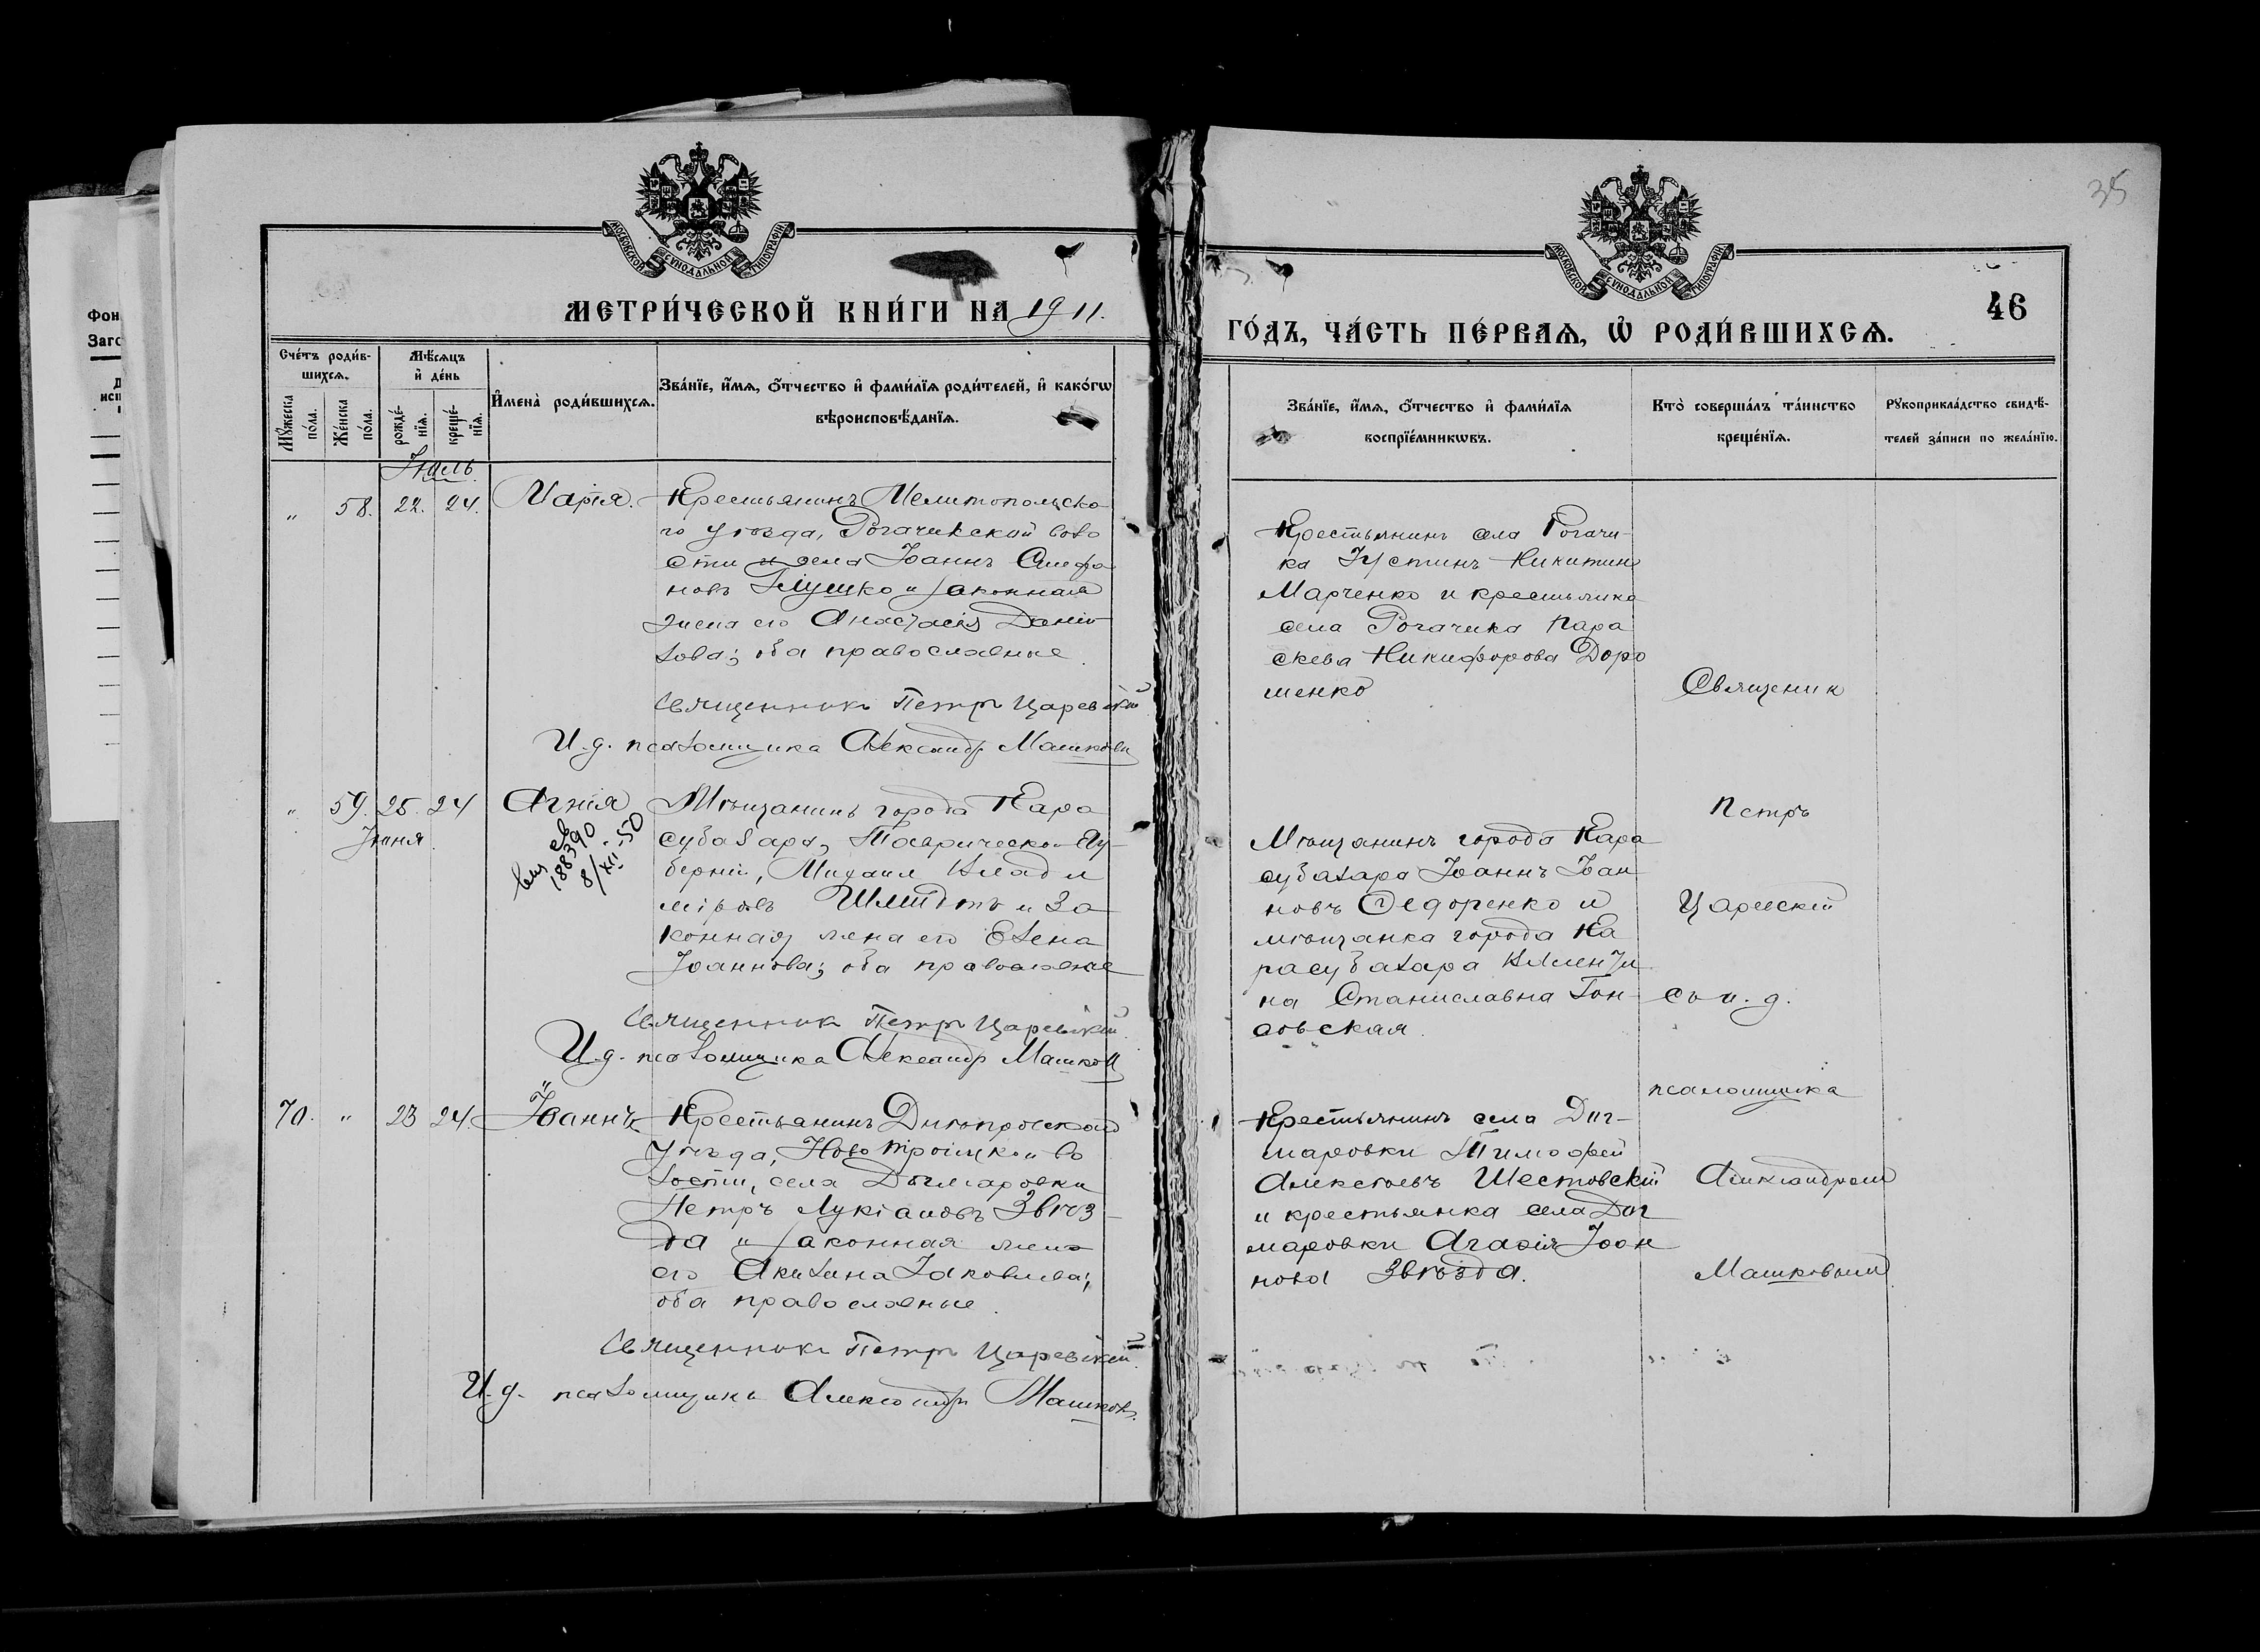 Фон
Заго
35
МОСКОВСКОЙ СѴНОДАЛЬНОЙ ТИПОГРАФІИ
МОСКОВСКОЙ СѴНОДАЛЬНОЙ ТИПОГРАФІИ
МЕТРИ́ЧЕСКОЙ КНИ́ГИ НА 1911.
46
ГО́ДЪ, ЧА́СТЬ ПЕ́РВАѦ, Ѡ҆ РОДИ́ВШИХСѦ.
Сче́тъ роди́в-
шихсѧ.
Мѣ́сѧцъ
и҆ де́нь
Мꙋ́жеска
по́ла.
Же́нска
по́ла.
рожде́-
нїѧ.
креще́-
нїѧ.
И҆мена̀ роди́вшихсѧ.
Зва́нїе, и҆́мѧ, ѻ҆́тчество и҆ фами́лїѧ роди́телей, и҆ како́гѡ
вѣроисповѣ́данїѧ.
Зва́нїе, и҆́мѧ, ѻ҆́тчество и҆ фами́лїѧ
воспрїе́мникѡвъ.
Кто̀ соверша́лъ та́инство
креще́нїѧ.
Рꙋкоприкла́дство свидѣ́-
телей за́писи по жела́нїю.
Июль
" 58. 22. 24. Марія. Крестьянинъ Мелитопольска
го уѣзда, Рогачикской воло
сти и села Іоаннъ Стефа
новъ Глушко и законная
жена его Анастасія Дани
лова; оба православные.
Священникъ Петръ Царевскій
И. д. псаломщика Александръ Машковъ
Крестьянинъ села Рогачи-
ка Іустинъ Никитинъ
Марченко и крестьянка
села Рогачика Пара
скева Никифорова Доро
шенко
Священик
" 59. 25. 24 Агнія Мѣщанинъ города Кара
Іюня
субазара, Таврической Гу-
берніи, Михаил Влади
міровъ Шмидтъ и За
конная жена его Елена
Іоаннова; оба православные
188390
8/XII-50
Священникъ Петръ Царевскій
И. д. псаломщика Александръ Машковъ
Мѣщанинъ города Кара
субазара Іоаннъ Іоан
новъ Ѳедоренко и
мѣщанка города Ка
расубазара Клементи
на Станиславна Гон-
овская.
Петръ
Царевскій
съ и. д.
псаломщика
70. " 23 24. Іоаннъ Крестьянинъ Днѣпровскаго
уѣзда, Ново Троицкой во
лости, села Дигмаровки
Петръ Лукіановъ Звѣз-
да и законная жена
его Акилина Іаковлева;
оба православные.
Священникъ Петръ Царевскій
И. д. псаломщика Александръ Машковъ.
Крестьянинъ села Диг-
маровки Тимофей
Алексѣевъ Шестовскій
и крестьянка села Диг
маровки Агафія Іоан
нова Звѣзда.
Александромъ
Машковымъ